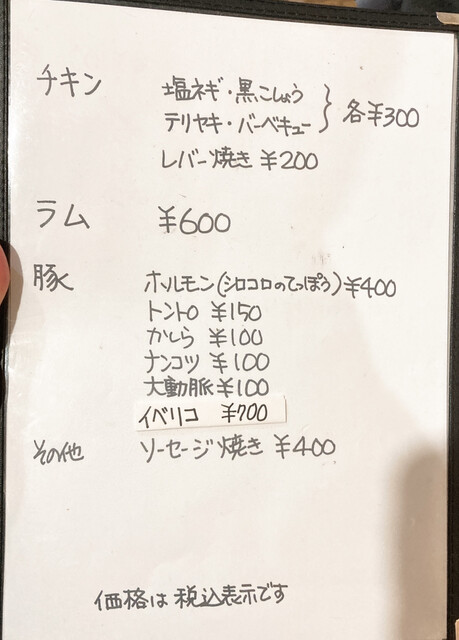 チキン 塩ネギ・黒こしょう
テリヤキ・バーベキュー } 各¥300
レバー焼き ¥200
ラム ¥600
豚 ホルモン(シロコロのてっぽう)¥400
トントロ ¥150
かしら ¥100
ナンコツ ¥100
大動脈 ¥100
イベリコ ¥700
その他 ソーセージ焼き ¥400
価格は税込表示です